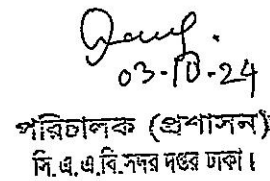 03-10-24
পরিচালক (প্রশাসন)
সি.এ.এ.বি.সদর দপ্তর ঢাকা।